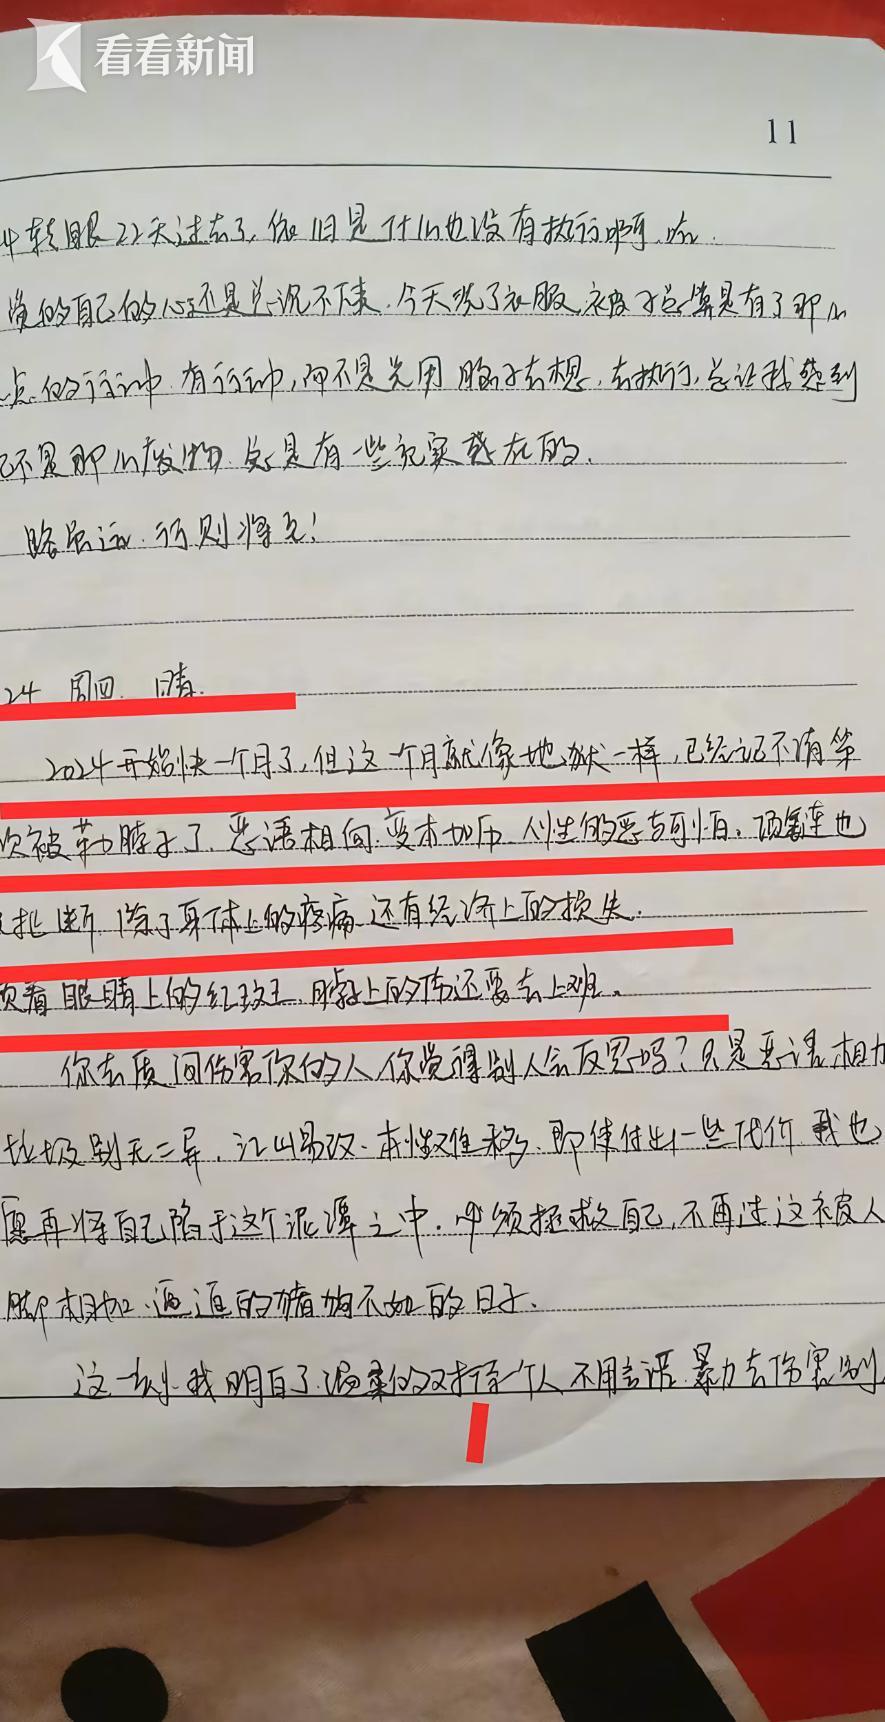 看看新闻
11
转眼22天过去了,依旧是什么也没有执行啊,唉.
觉的自己的心还是总沉不下来.今天洗了衣服,被子总算是有了那么
点的行动.有行动,而不是光用脑子去想,去执行,总让我感到
己不是那么废物.总是有一些记实感在的.
路虽远.行则将至!
24 周四. 晴.
2024开始快一个月了,但这一个月就像地狱一样,已经记不清第
次被勒脖子了.恶语相向.变本加历.人性的恶与可怕.项链也
扯断.除了身体上的疼痛.还有经济上的损失.
顶着眼睛上的红斑.脖子上的伤还要去上班.
你去质问伤害你的人.你觉得别人会反思吗?只是恶语相向
垃圾到无二异.江山易改.本性难移.即使付出一些代价.我也
愿再将自己陷于这个泥潭之中.必须拯救自己,不再过这被人
脚相加.逼迫的猪狗不如的日子.
这一刻.我明白了.温柔的对待一个人.不用言语.暴力去伤害别